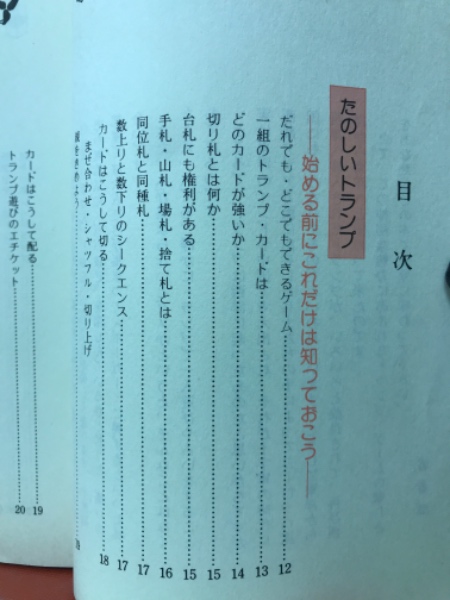 目次
たのしいトランプ
――始める前にこれだけは知っておこう――
だれでも・どこでもできるゲーム……12
一組のトランプ・カードは……13
どのカードが強いか……14
切り札とは何か……15
台札にも権利がある……15
手札・山札・場札・捨て札とは……16
同位札と同種札……17
数上りと数下りのシークエンス……17
カードはこうして切る……18
まぜ合わせ・シャッフル・切り上げ
カードはこうして配る……19
トランプ遊びのエチケット……20